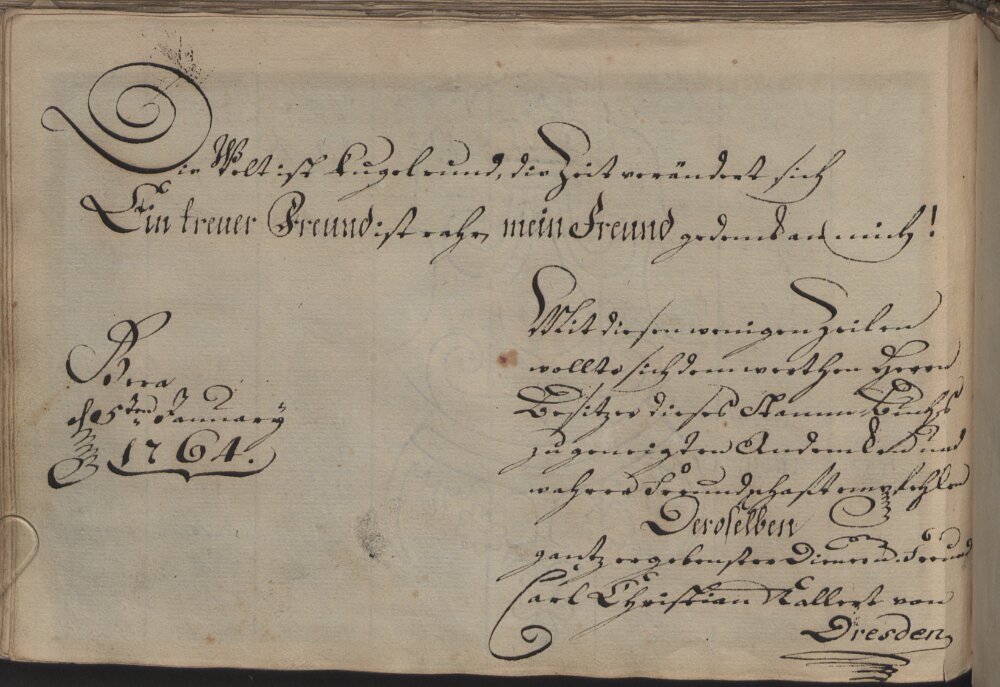 Die Welt ist kugelrund, die Zeit verändert sich
Ein treuer Freund ist rahr, mein Freund gedenck an mich!
Gera
d. 5ten January
1764.
Mit diesen wenigen Zeilen
wollte sich dem werthen Herrn
Besitzer dieses Stamm-Buchs
zu geneigten Andencken und
wahrer Freundschafft empfehlen
Deroselben
gantz ergebenster Diener u. Freund
Carl Christian von
Dresden